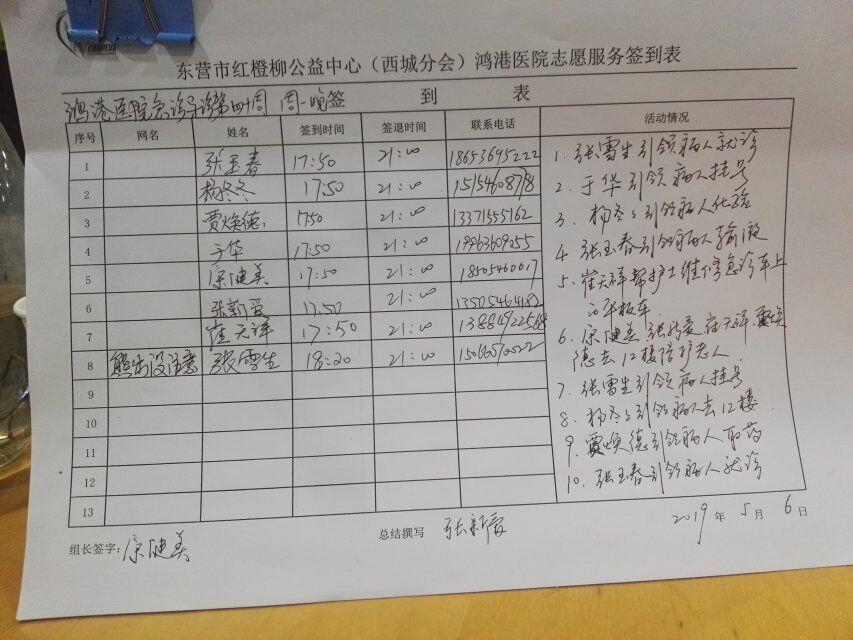 东营市红橙柳公益中心（西城分会）鸿港医院志愿服务签到表
鸿港医院急诊导诊第四十周 周一晚签 到 表
序号 网名 姓名 签到时间 签退时间 联系电话 活动情况
1 张玉春 17:50 21:00 18653695222
2 杨冬冬 17:50 21:00
3 贾焕德 1750 21:00 13371555162
4 于华 17:50 21:00 19963609255
5 宗健美 17:50 21:00 18505460617
6 张新爱 17:50 21:00 13505464182
7 崔天祥 17:50 21:00 13884922568
8 熊出没注意 张雪生 18:20 21:00
9
10
11
12
13
1. 张雪生引领病人就诊
2. 于华引领病人挂号
3. 杨冬冬引领病人化验
4. 张玉春引领病人输液
5. 崔天祥帮护士维修急诊车上
的平板车
6. 宗健美 张新爱 崔天祥 贾焕
德去12楼陪护老人
7. 张雪生引领病人挂号
8. 杨冬冬引领病人去12楼
9. 贾焕德引领病人取药
10. 张玉春引领病人就诊
组长签字：宗健美 总结撰写 张新爱 2019 年 5 月 6 日